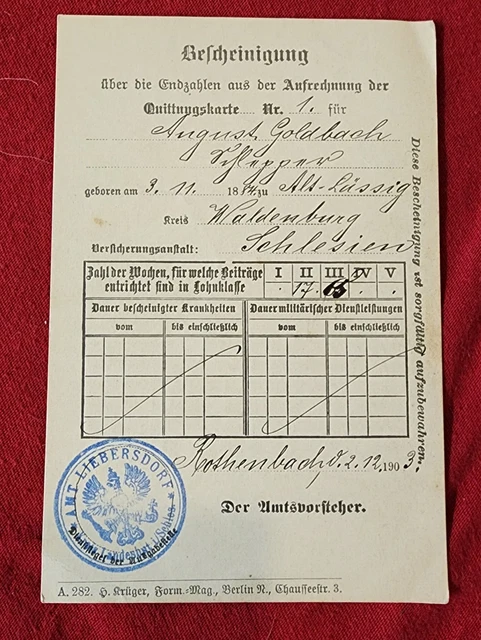 Bescheinigung
über die Endzahlen aus der Aufrechnung der
Quittungskarte Nr. 1. für
August Goldbach
Schlepper
geboren am 3. 11. 1884 zu Alt-Lässig
Kreis Waldenburg
Versicherungsanstalt: Schlesien
Zahl der Wochen, für welche Beiträge entrichtet sind in Lohnklasse
I II III IV V
. 17. 15 . .
Dauer bescheinigter Krankheiten Dauer militärischer Dienstleistungen
vom bis einschließlich vom bis einschließlich
Rothenbach, d. 2. 12. 1903.
Der Amtsvorsteher.
AMT LIEBERSDORF
Landeshut i/Schles.
Dienstsiegel der Ausgabestelle
A. 282. H. Krüger, Form.-Mag., Berlin N., Chausseestr. 3.
Diese Bescheinigung ist sorgfältig aufzubewahren.